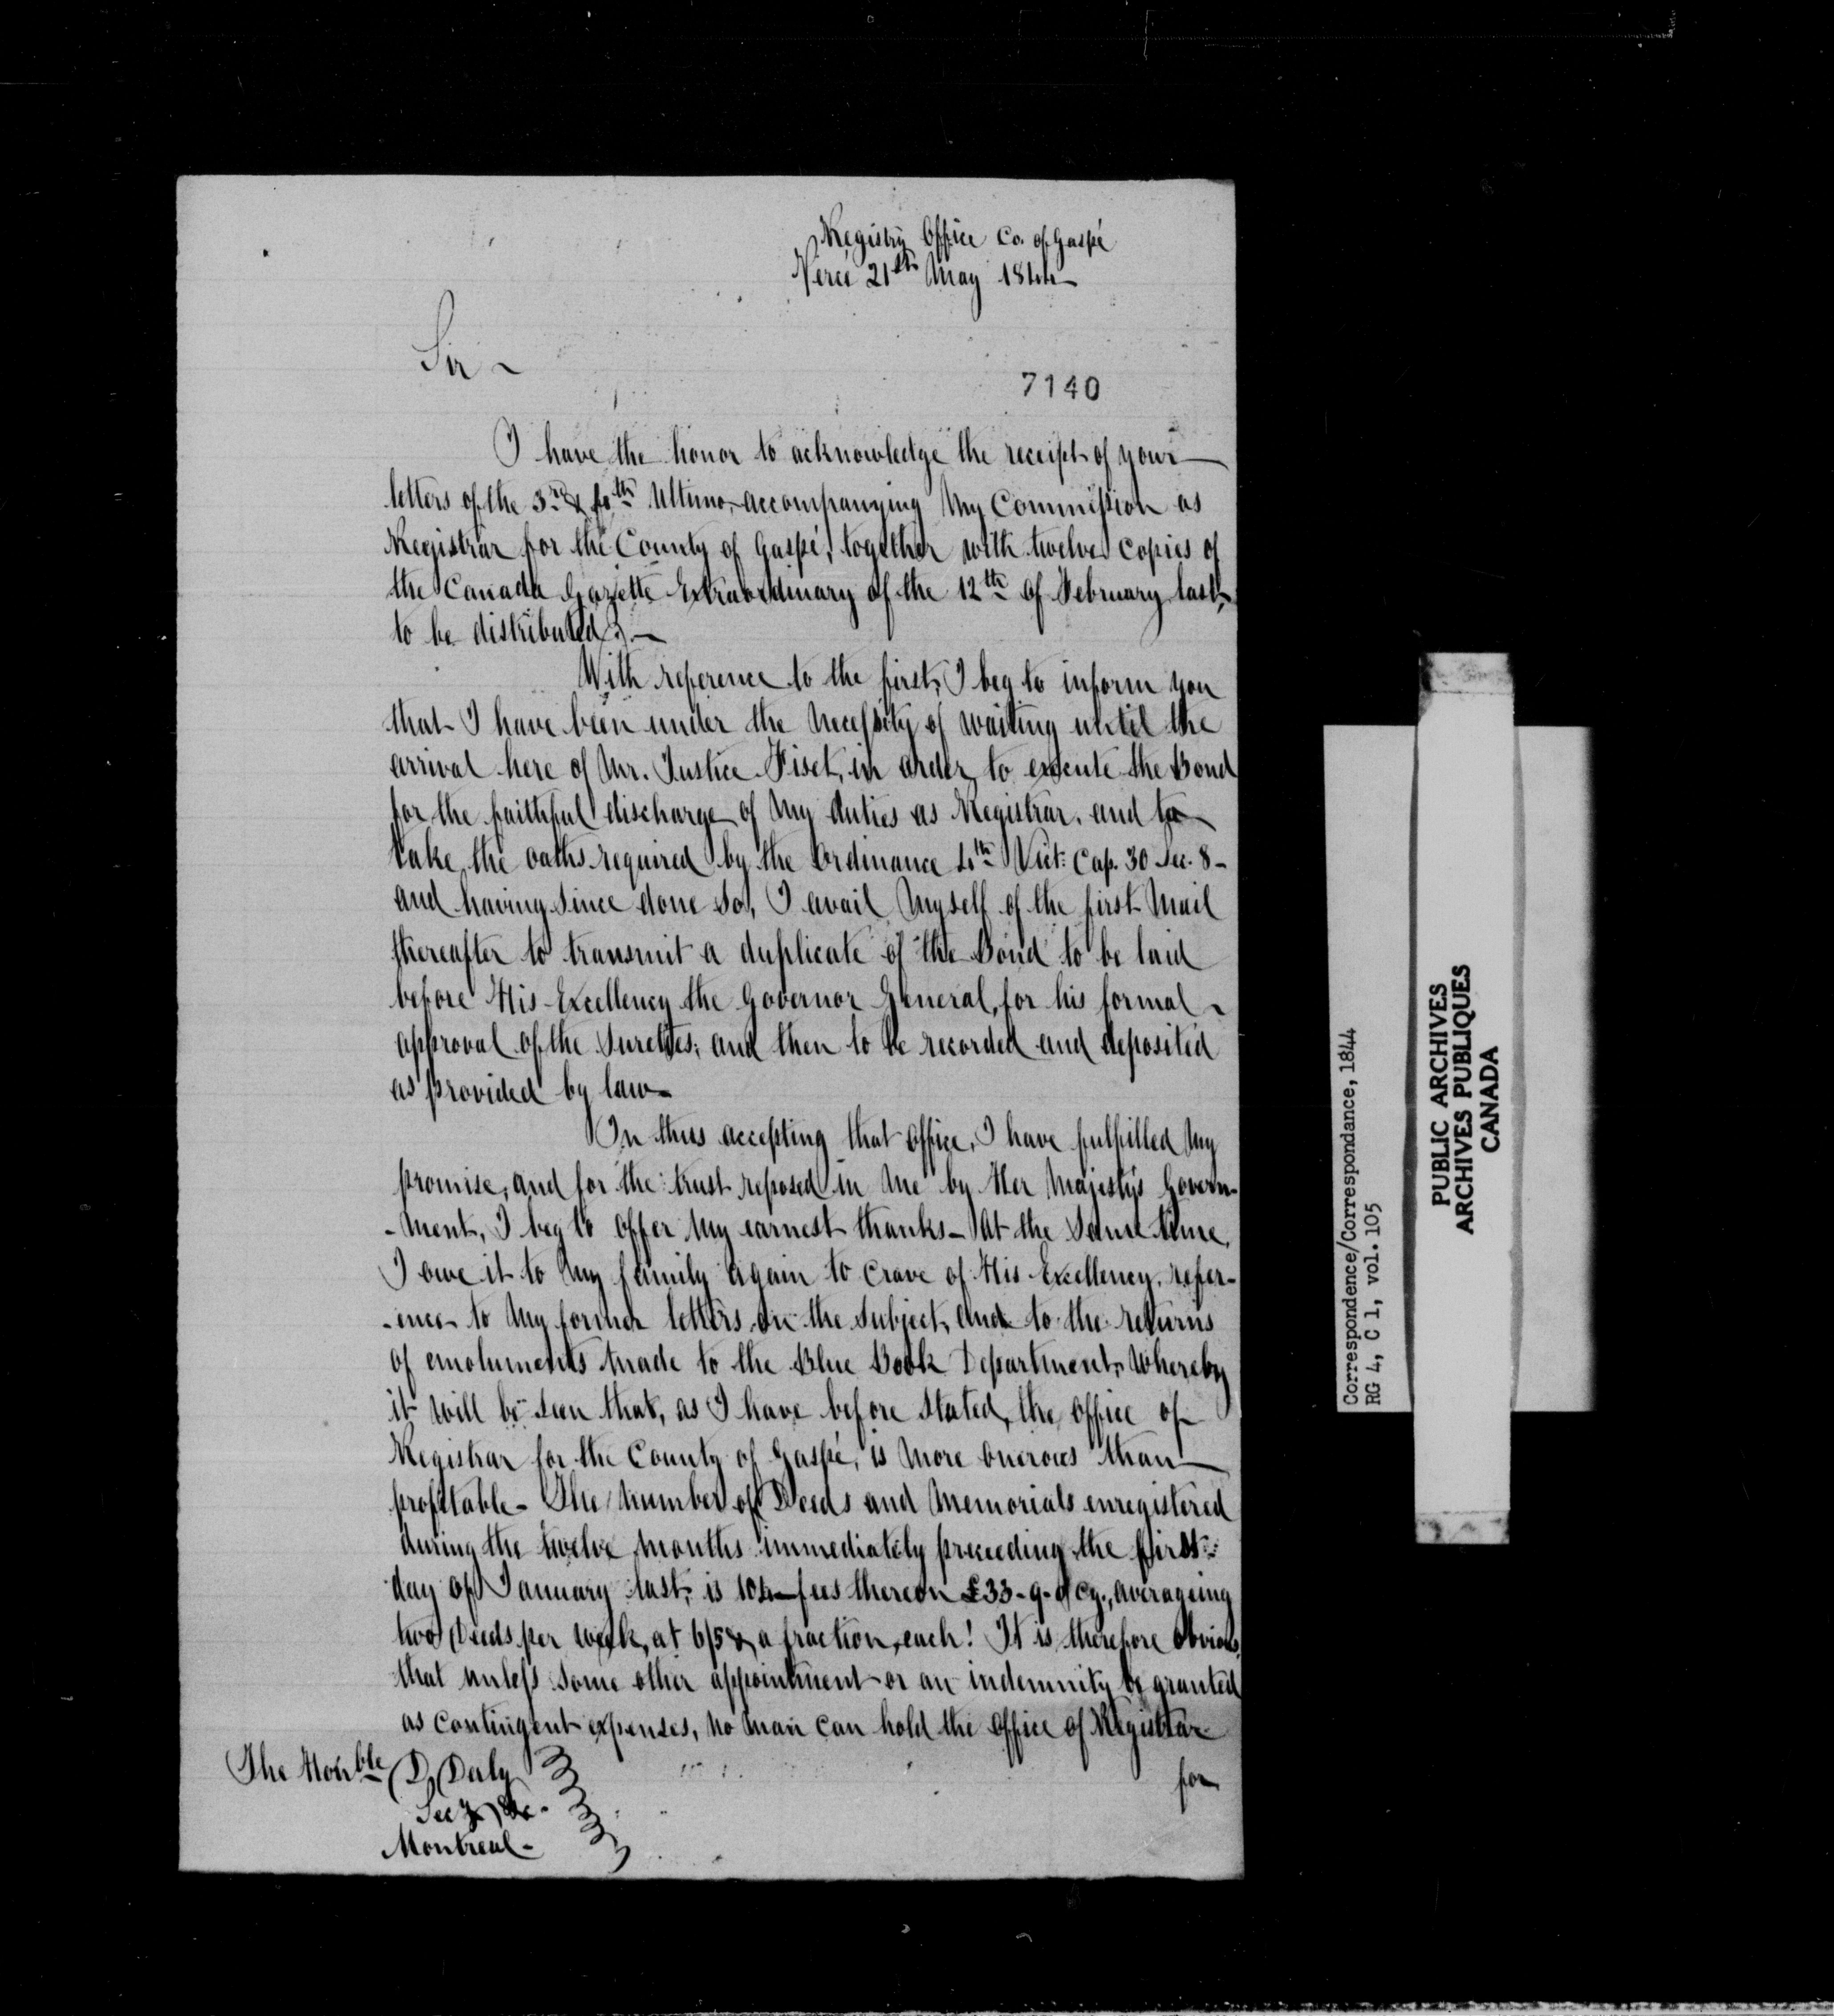 Registry Office Co. of Gaspé
Percé 21st May 1844
Sir
7140
I have the honor to acknowledge the receipt of your
letters of the 3rd & Ultimo, accompanying My Commission as
Registrar for the County of Gaspé, together with twelve copies of
the Canada Gazette Extraordinary of the 12th of February last,
to be distributed.
With reference to the first, I beg to inform you
that I have been under the necessity of waiting until the
arrival here of Mr. Justice Fiset, in order to execute the Bond
for the faithful discharge of my duties as Registrar, and to
take the oaths required by the Ordinance 4th Vict: Cap. 30 Sec. 8 -
and having since done so, I avail myself of the first Mail
thereafter to transmit a duplicate of the Bond to be laid
before His Excellency the Governor General, for his formal
approval of the Sureties; and then to be recorded and deposited
as provided by law.
In thus accepting that office, I have fulfilled My
promise, and for the trust reposed in me by Her Majesty's Govern-
-ment, I beg to offer my earnest thanks - At the same time,
I owe it to my family again to crave of His Excellency, refer-
-ence to my former letters on the subject, and to the returns
of emoluments made to the Blue Book Department, whereby
it will be seen that, as I have before stated, the office of
Registrar for the County of Gaspé, is more onerous than
profitable - The number of Deeds and Memorials enregistered
during the twelve months immediately preceeding the first
day of January last, is 104 - fees thereon £33-9-9 Cy., averageing
two Deeds per week, at 6/5 & a fraction, each! It is therefore obvious,
that unless some other appointment or an indemnity be granted
as contingent expenses, no man can hold the office of Registrar
for
The Honble D. Daly
Secy &c.
Montreal -
Correspondence/Correspondance, 1844
RG 4, C 1, vol. 105
PUBLIC ARCHIVES
ARCHIVES PUBLIQUES
CANADA